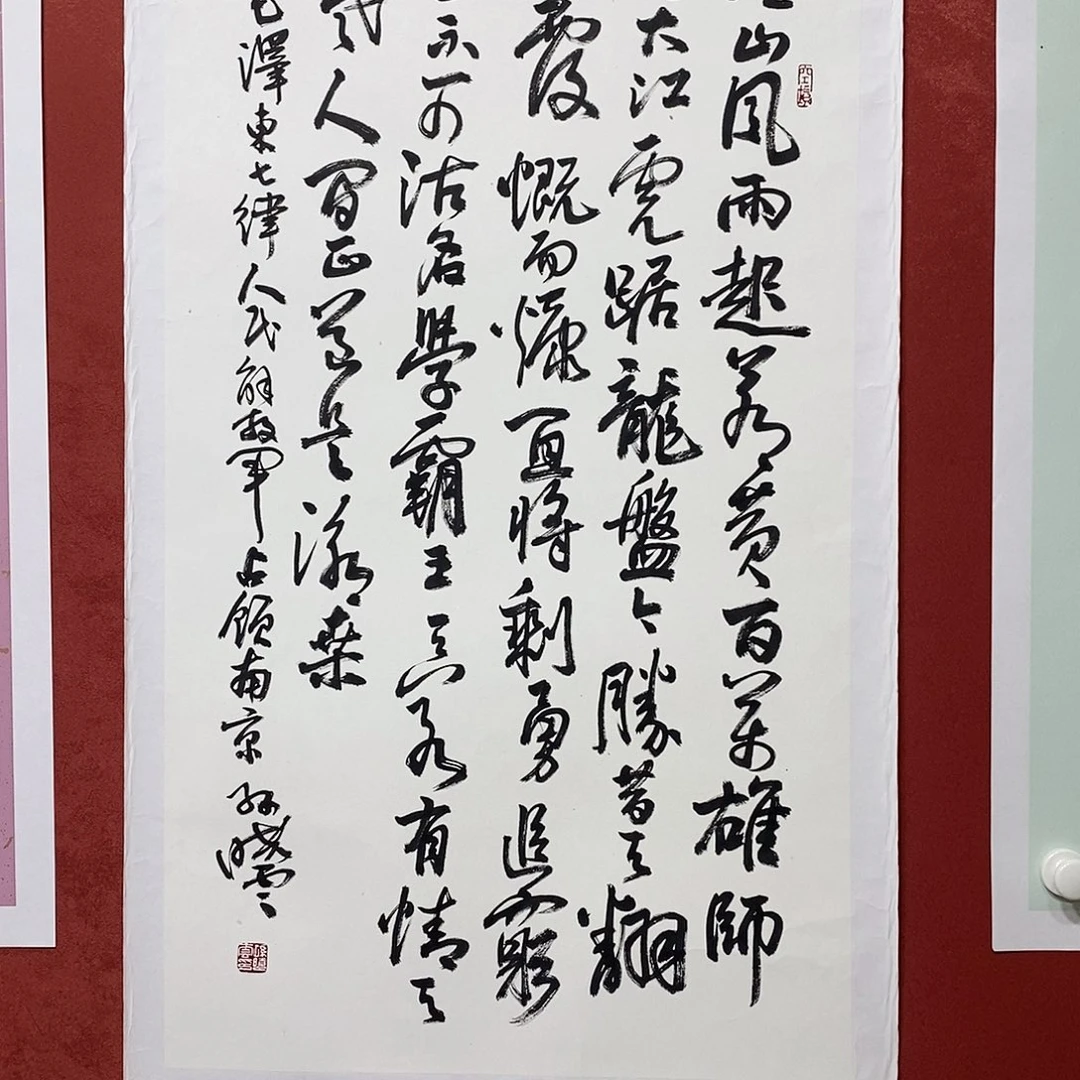 山風雨起蒼黃百萬雄師
大江虎踞龍盤今勝昔天翻
覆慨而慷宜將剩勇追窮
不可沽名學霸王天若有情天
人間正道是滄桑
毛澤東七律人民解放軍占領南京 孫曉雲